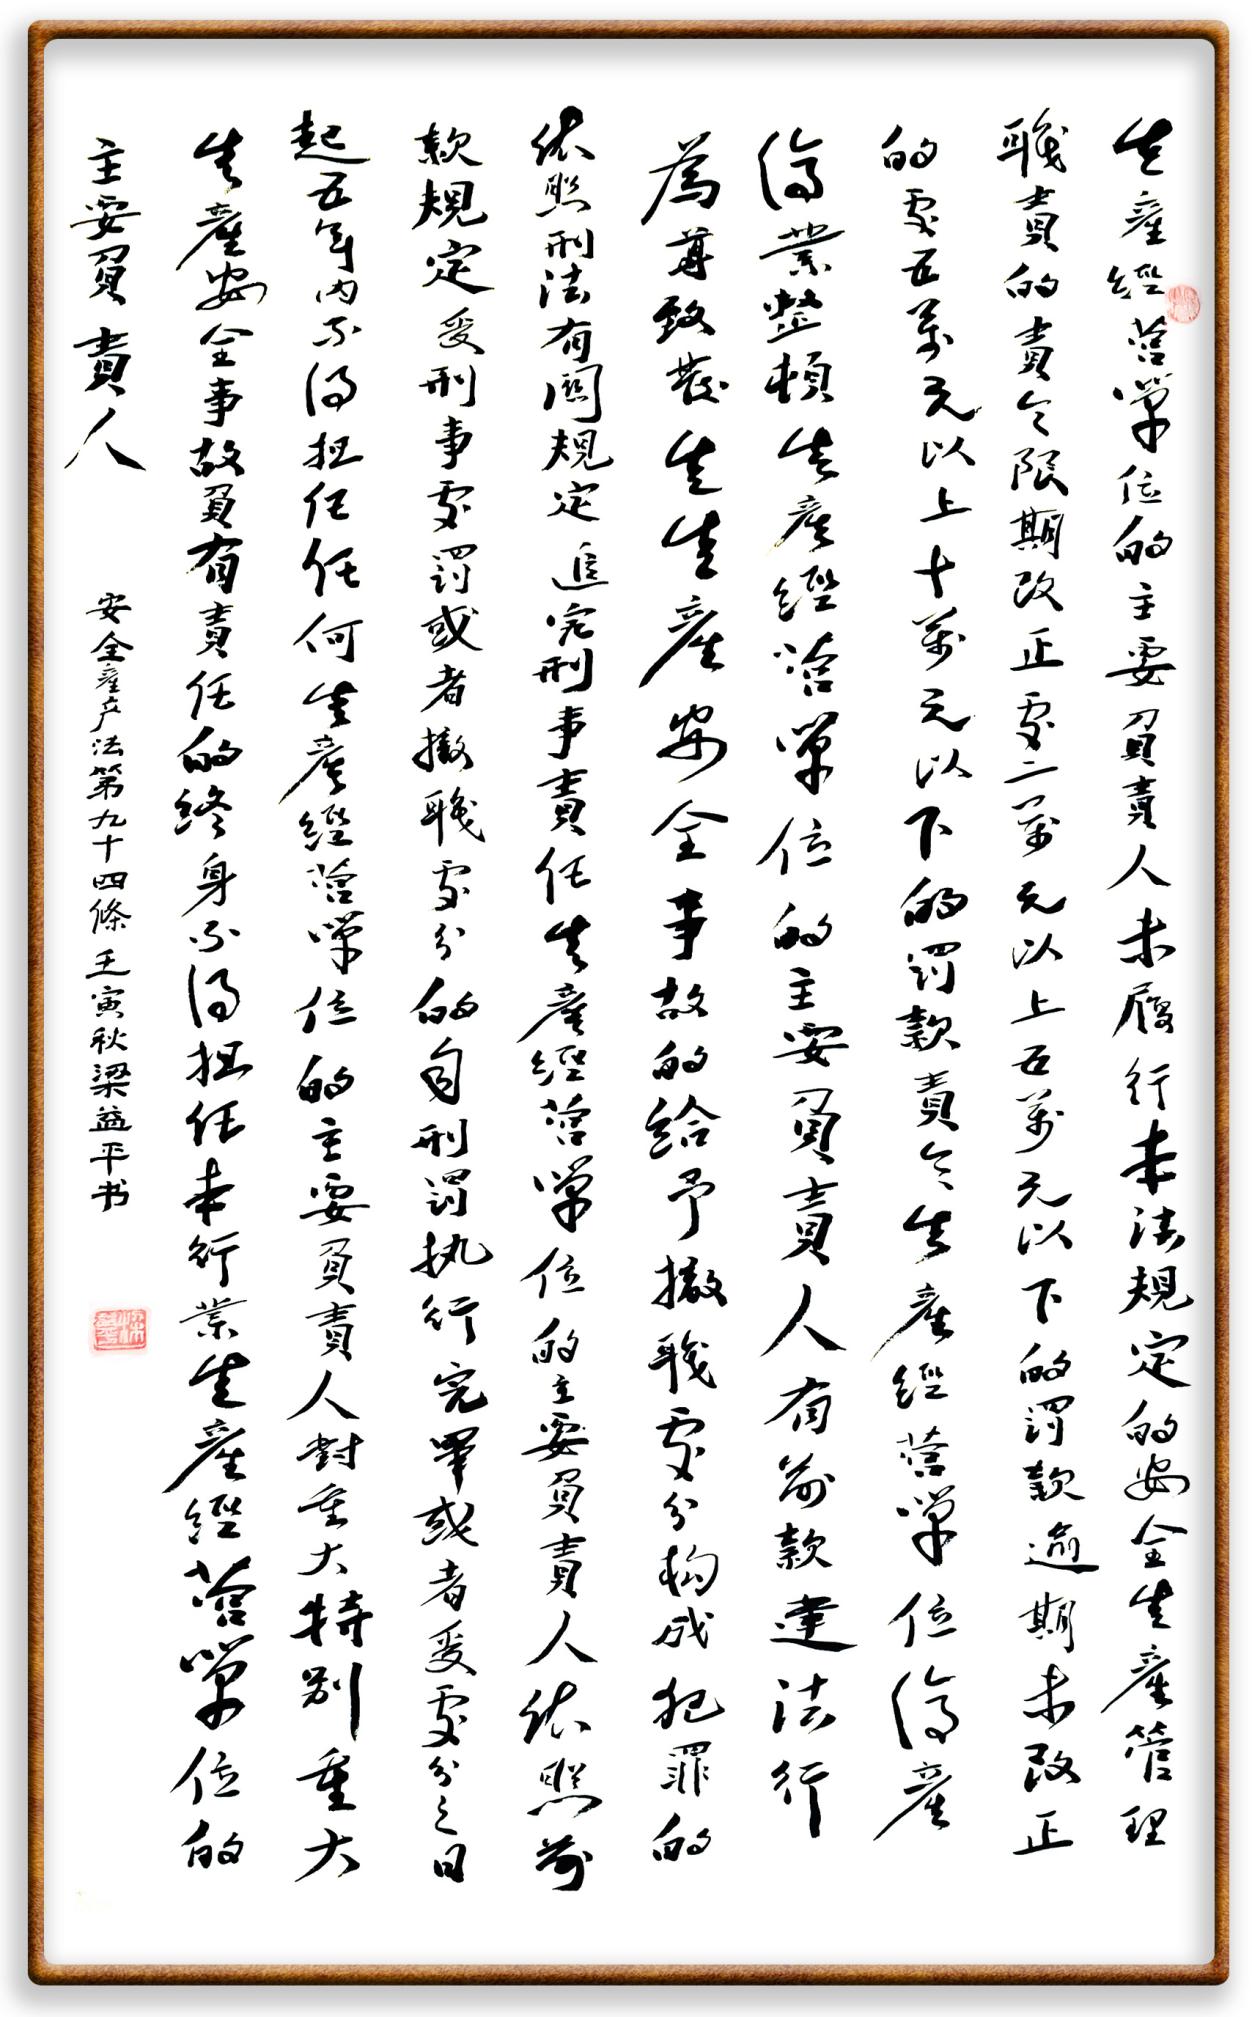 生產經營單位的主要負責人未履行本法規定的安全生產管理
職責的責令限期改正處二萬元以上五萬元以下的罰款逾期未改正
的處五萬元以上十萬元以下的罰款責令生產經營單位停產
停業整頓生產經營單位的主要負責人有前款違法行
為尊致發生生產安全事故的給予撤職處分构成犯罪的
依照刑法有關規定追究刑事責任生產經營單位的主要負責人依照前
款規定受刑事處罰或者撤職處分的自刑罰执行完畢或者受處分之日
起五年內不得担任任何生產經營單位的主要負責人對重大特別重大
生產安全事故負有責任的終身不得担任本行業生產經營單位的
主要負責人
安全產产法第九十四條 壬寅秋梁益平书